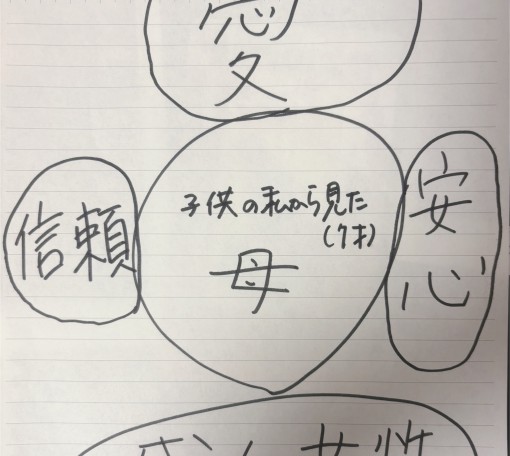 愛
信頼
子供の私から見た
(7才)
母
安心
女性